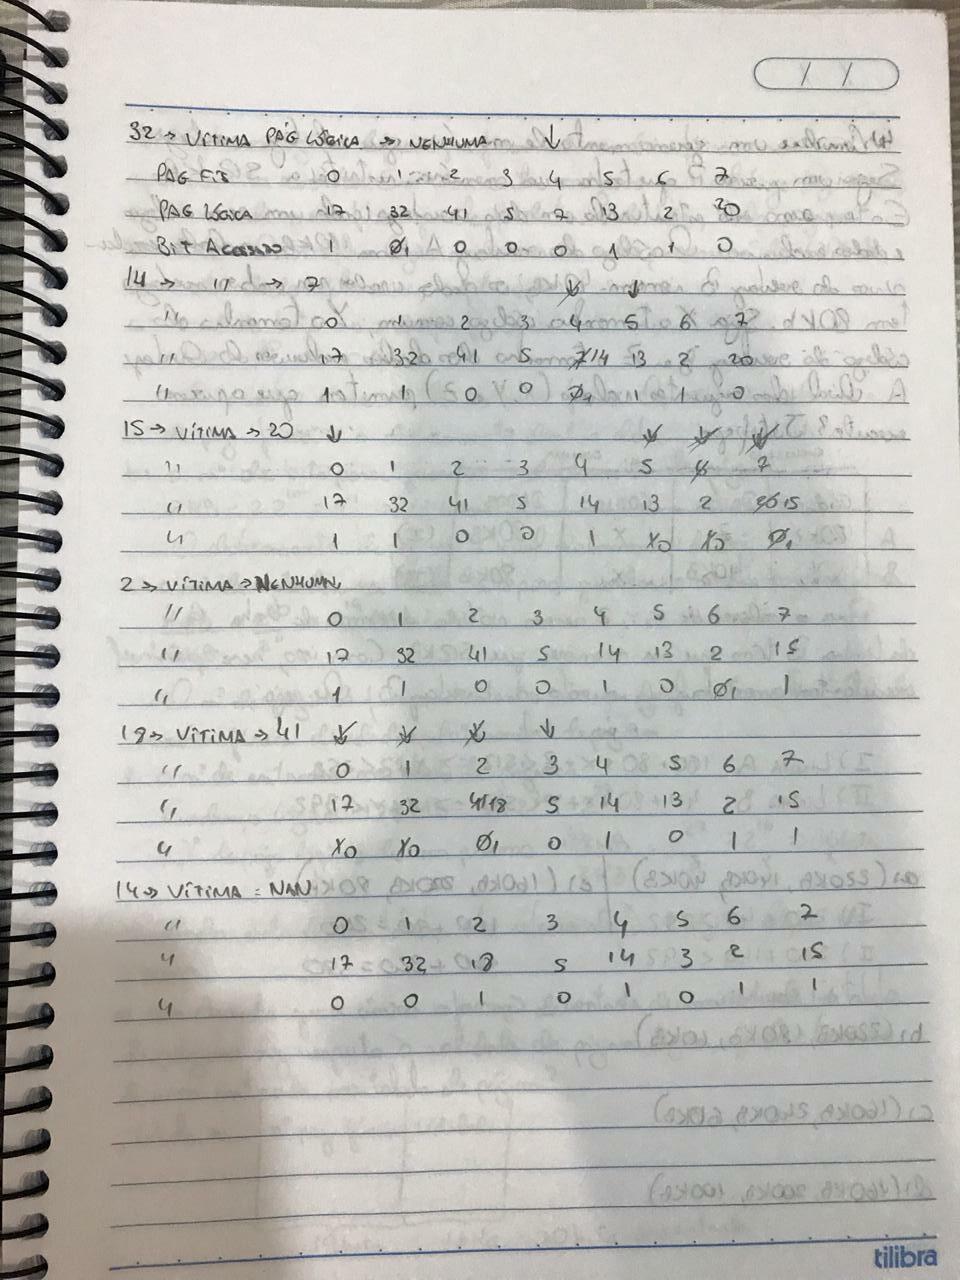 32 → VÍTIMA PÁG LÓGICA → NENHUMA ↓
PÁG FIS 0 1 2 3 4 5 6 7
PÁG LÓGICA 17 32 41 5 7 13 2 20
BIT ACESSADO 1 0 1 0 0 0 1 1 0
14 → " → 7 ↓ ↓
" 0 1 2 3 4 5 6 7
" 17 32 41 5 7 14 13 2 20
" 1 1 0 0 0 1 1 1 0
15 → VÍTIMA → 20 ↓ ↓ ↓ ↓
" 0 1 2 3 4 5 6 7
" 17 32 41 5 14 13 2 20 15
" 1 1 0 0 1 1 0 1 0 0 1
2 → VÍTIMA → NENHUMA
" 0 1 2 3 4 5 6 7
" 17 32 41 5 14 13 2 15
" 1 1 0 0 1 0 0 1 1
18 → VÍTIMA → 41 ↓ ↓ ↓ ↓
" 0 1 2 3 4 5 6 7
" 17 32 41 18 5 14 13 2 15
" 1 0 1 0 0 1 0 1 0 1 1
14 → VÍTIMA = NAN
" 0 1 2 3 4 5 6 7
" 17 32 18 5 14 3 2 15
" 0 0 1 0 1 0 1 1
tilibra